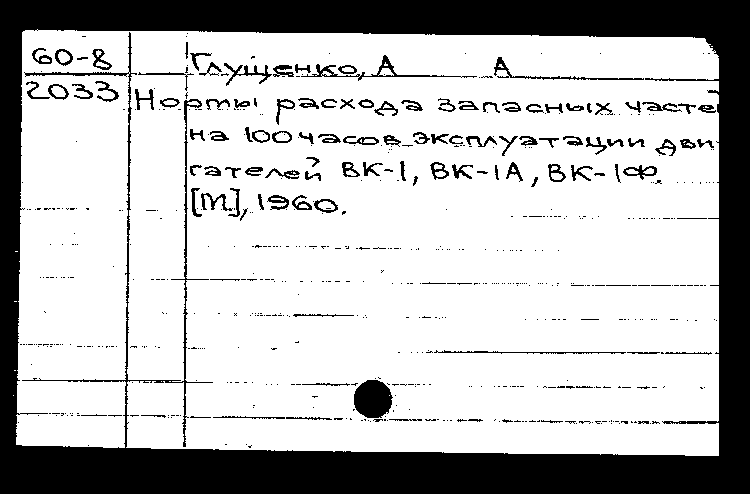 60-8 Глущенко, А А
2033 Нормы расхода запасных частей
на 100 часов эксплуатации дви-
гателей ВК-1, ВК-1А, ВК-1Ф.
[М], 1960.